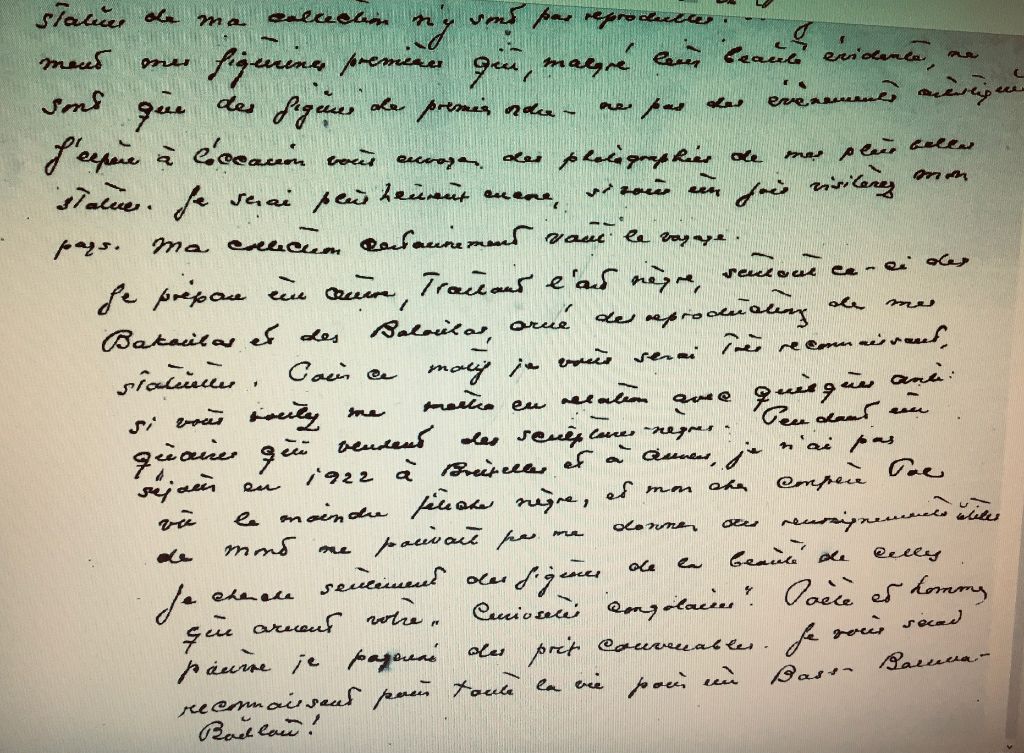 statues de ma collection n'y sont pas reproduites.
ment mes figurines premières qui, malgré leur beauté évidente, ne
sont que des figures de premier ordre - ne pas des évènements artistiques
J'espère à l'occasion vous envoyer des photographies de mes plus belles
statues. Je serai plus heureux encore, si vous un jour visiterez mon
pays. Ma collection certainement vaut le voyage.
Je prépare un œuvre, traitant l'art nègre, surtout ce-ci des
Bakoubas et des Baloubas, orné des reproductions de mes
statuettes. Pour ce motif je vous serai très reconnaissant,
si vous voulez me mettre en relation avec quelques anti-
quaires qui vendent des sculptures nègres. Pendant un
séjour en 1922 à Bruxelles et à Anvers, je n'ai pas
vu le moindre fétiche nègre, et mon cher confrère Pol
de Mont ne pouvait pas me donner des renseignements utiles
Je cherche seulement des figures de la beauté de celles
qui ornent votre „Curiosités congolaises". Poète et homme
pauvre je payerai des prix convenables. Je vous serai
reconnaissant pour toute la vie pour un